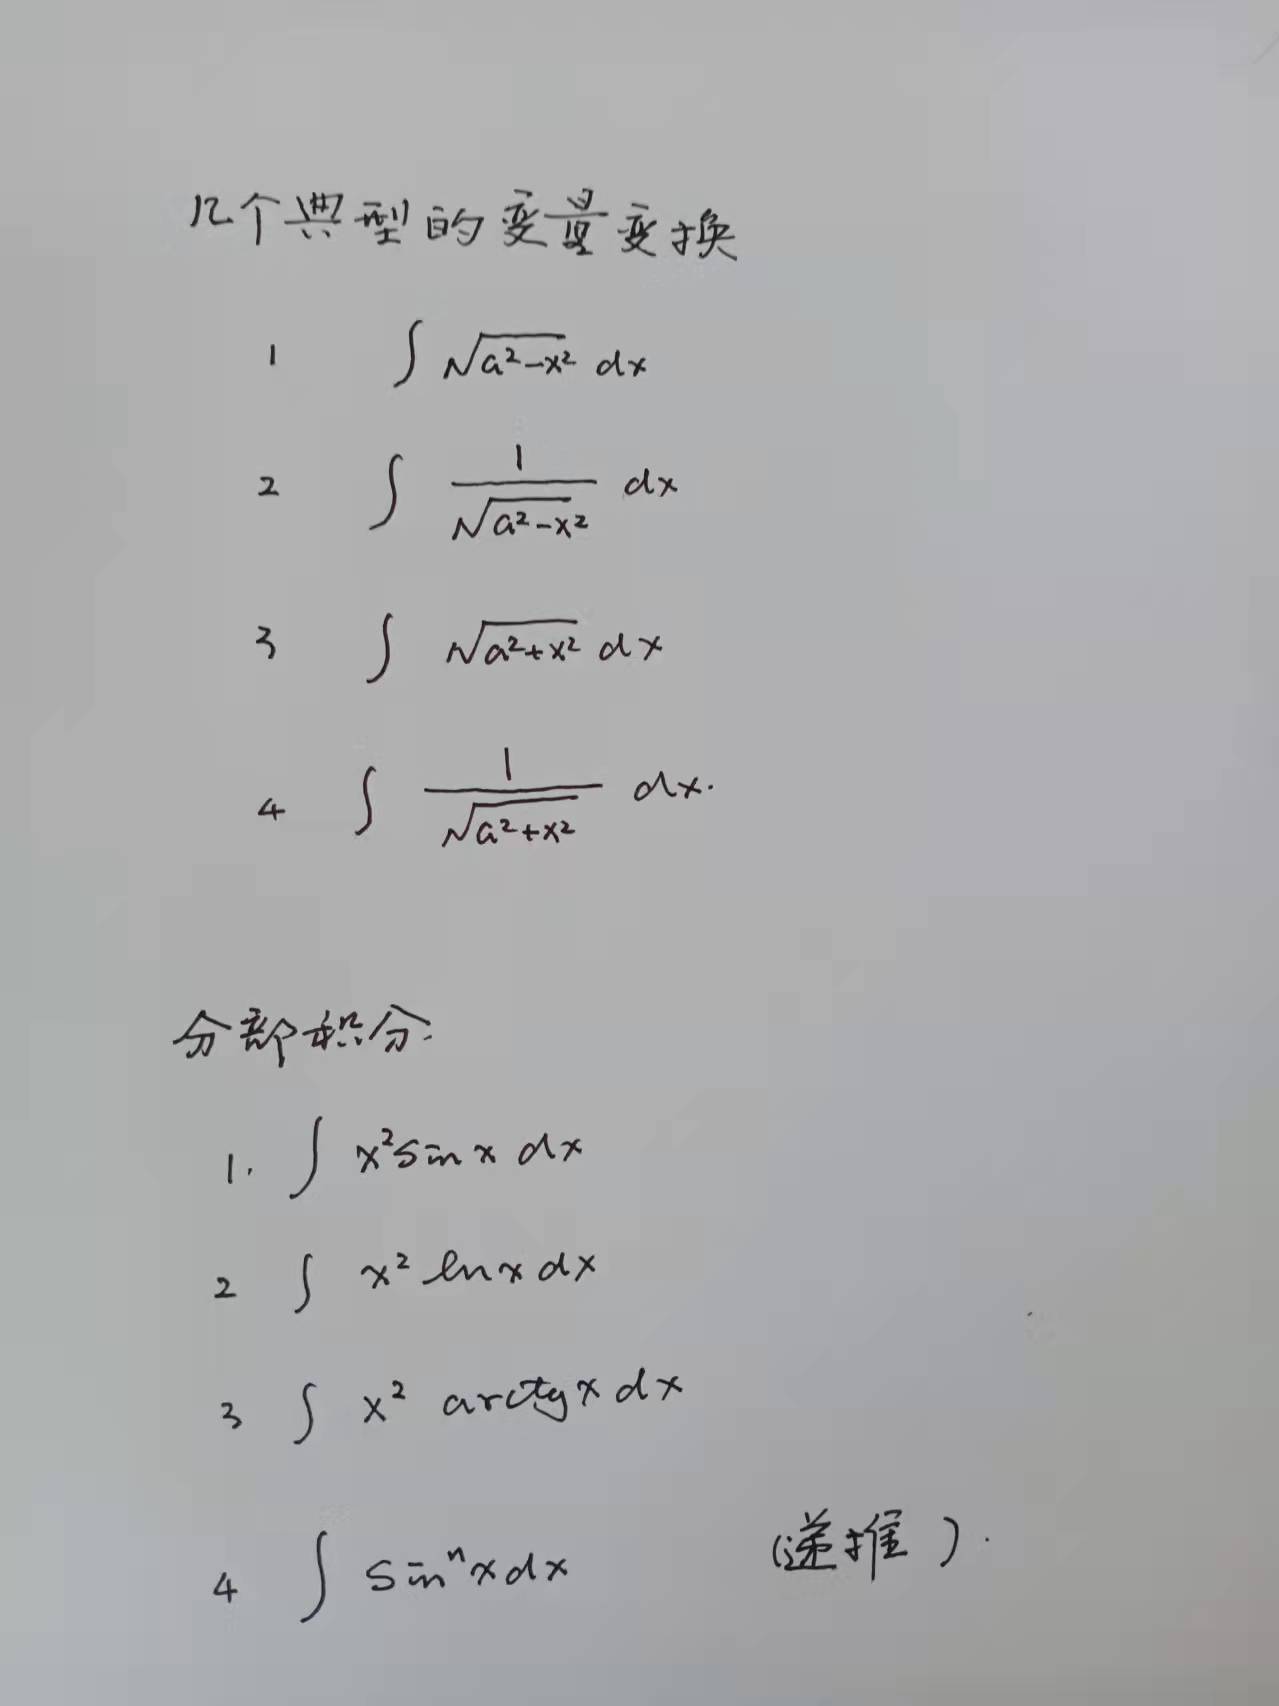 几个典型的变量变换
1 ∫ √(a²-x²) dx
2 ∫ 1/√(a²-x²) dx
3 ∫ √(a²+x²) dx
4 ∫ 1/√(a²+x²) dx.
分部积分:
1. ∫ x² sin x dx
2 ∫ x² ln x dx
3 ∫ x² arctg x dx
4 ∫ sinⁿ x dx (递推).